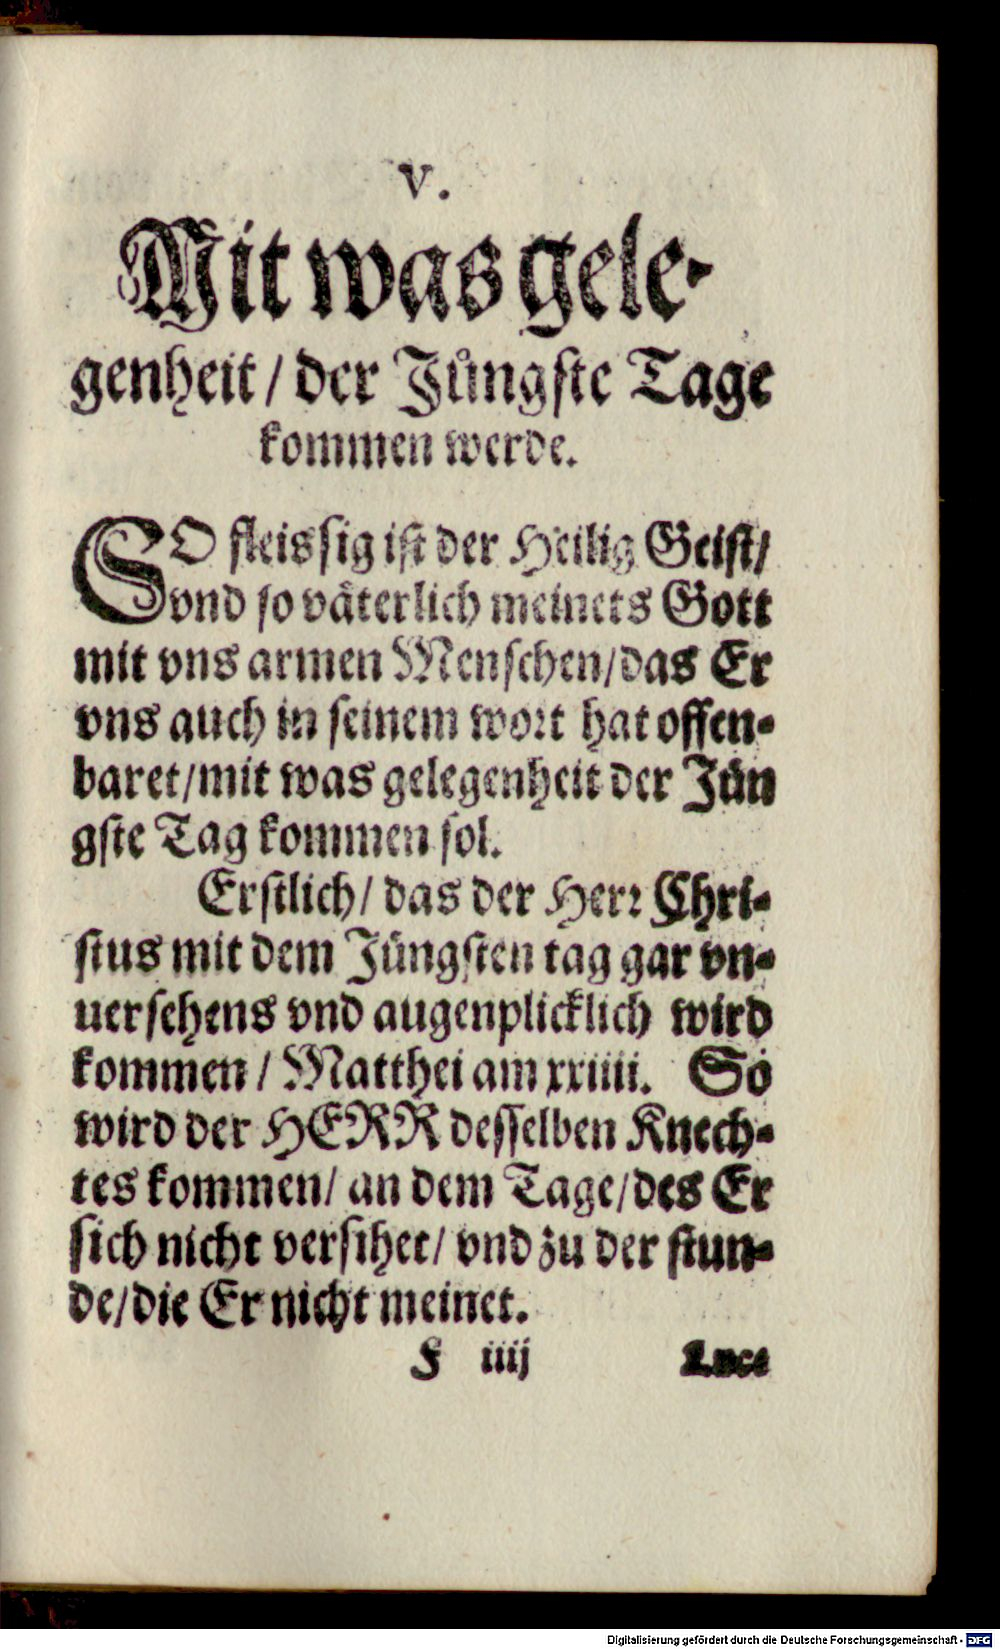 V.
Mit was gele-
genheit / der Jüngste Tage
kommen werde.
SO fleissig ist der Heilig Geist /
vnd so väterlich meinets Gott
mit vns armen Menschen / das Er
vns auch in seinem wort hat offen-
baret / mit was gelegenheit der Jün
gste Tag kommen sol.
Erstlich / das der Herr Chri-
stus mit dem Jüngsten tag gar vn-
uersehens vnd augenplicklich wird
kommen / Matthei am xxiiii. So
wird der HERR desselben Knech-
tes kommen / an dem Tage / des Er
sich nicht versihet / vnd zu der stun-
de / die Er nicht meinet.
F iiij Luce
Digitalisierung gefördert durch die Deutsche Forschungsgemeinschaft - DFG